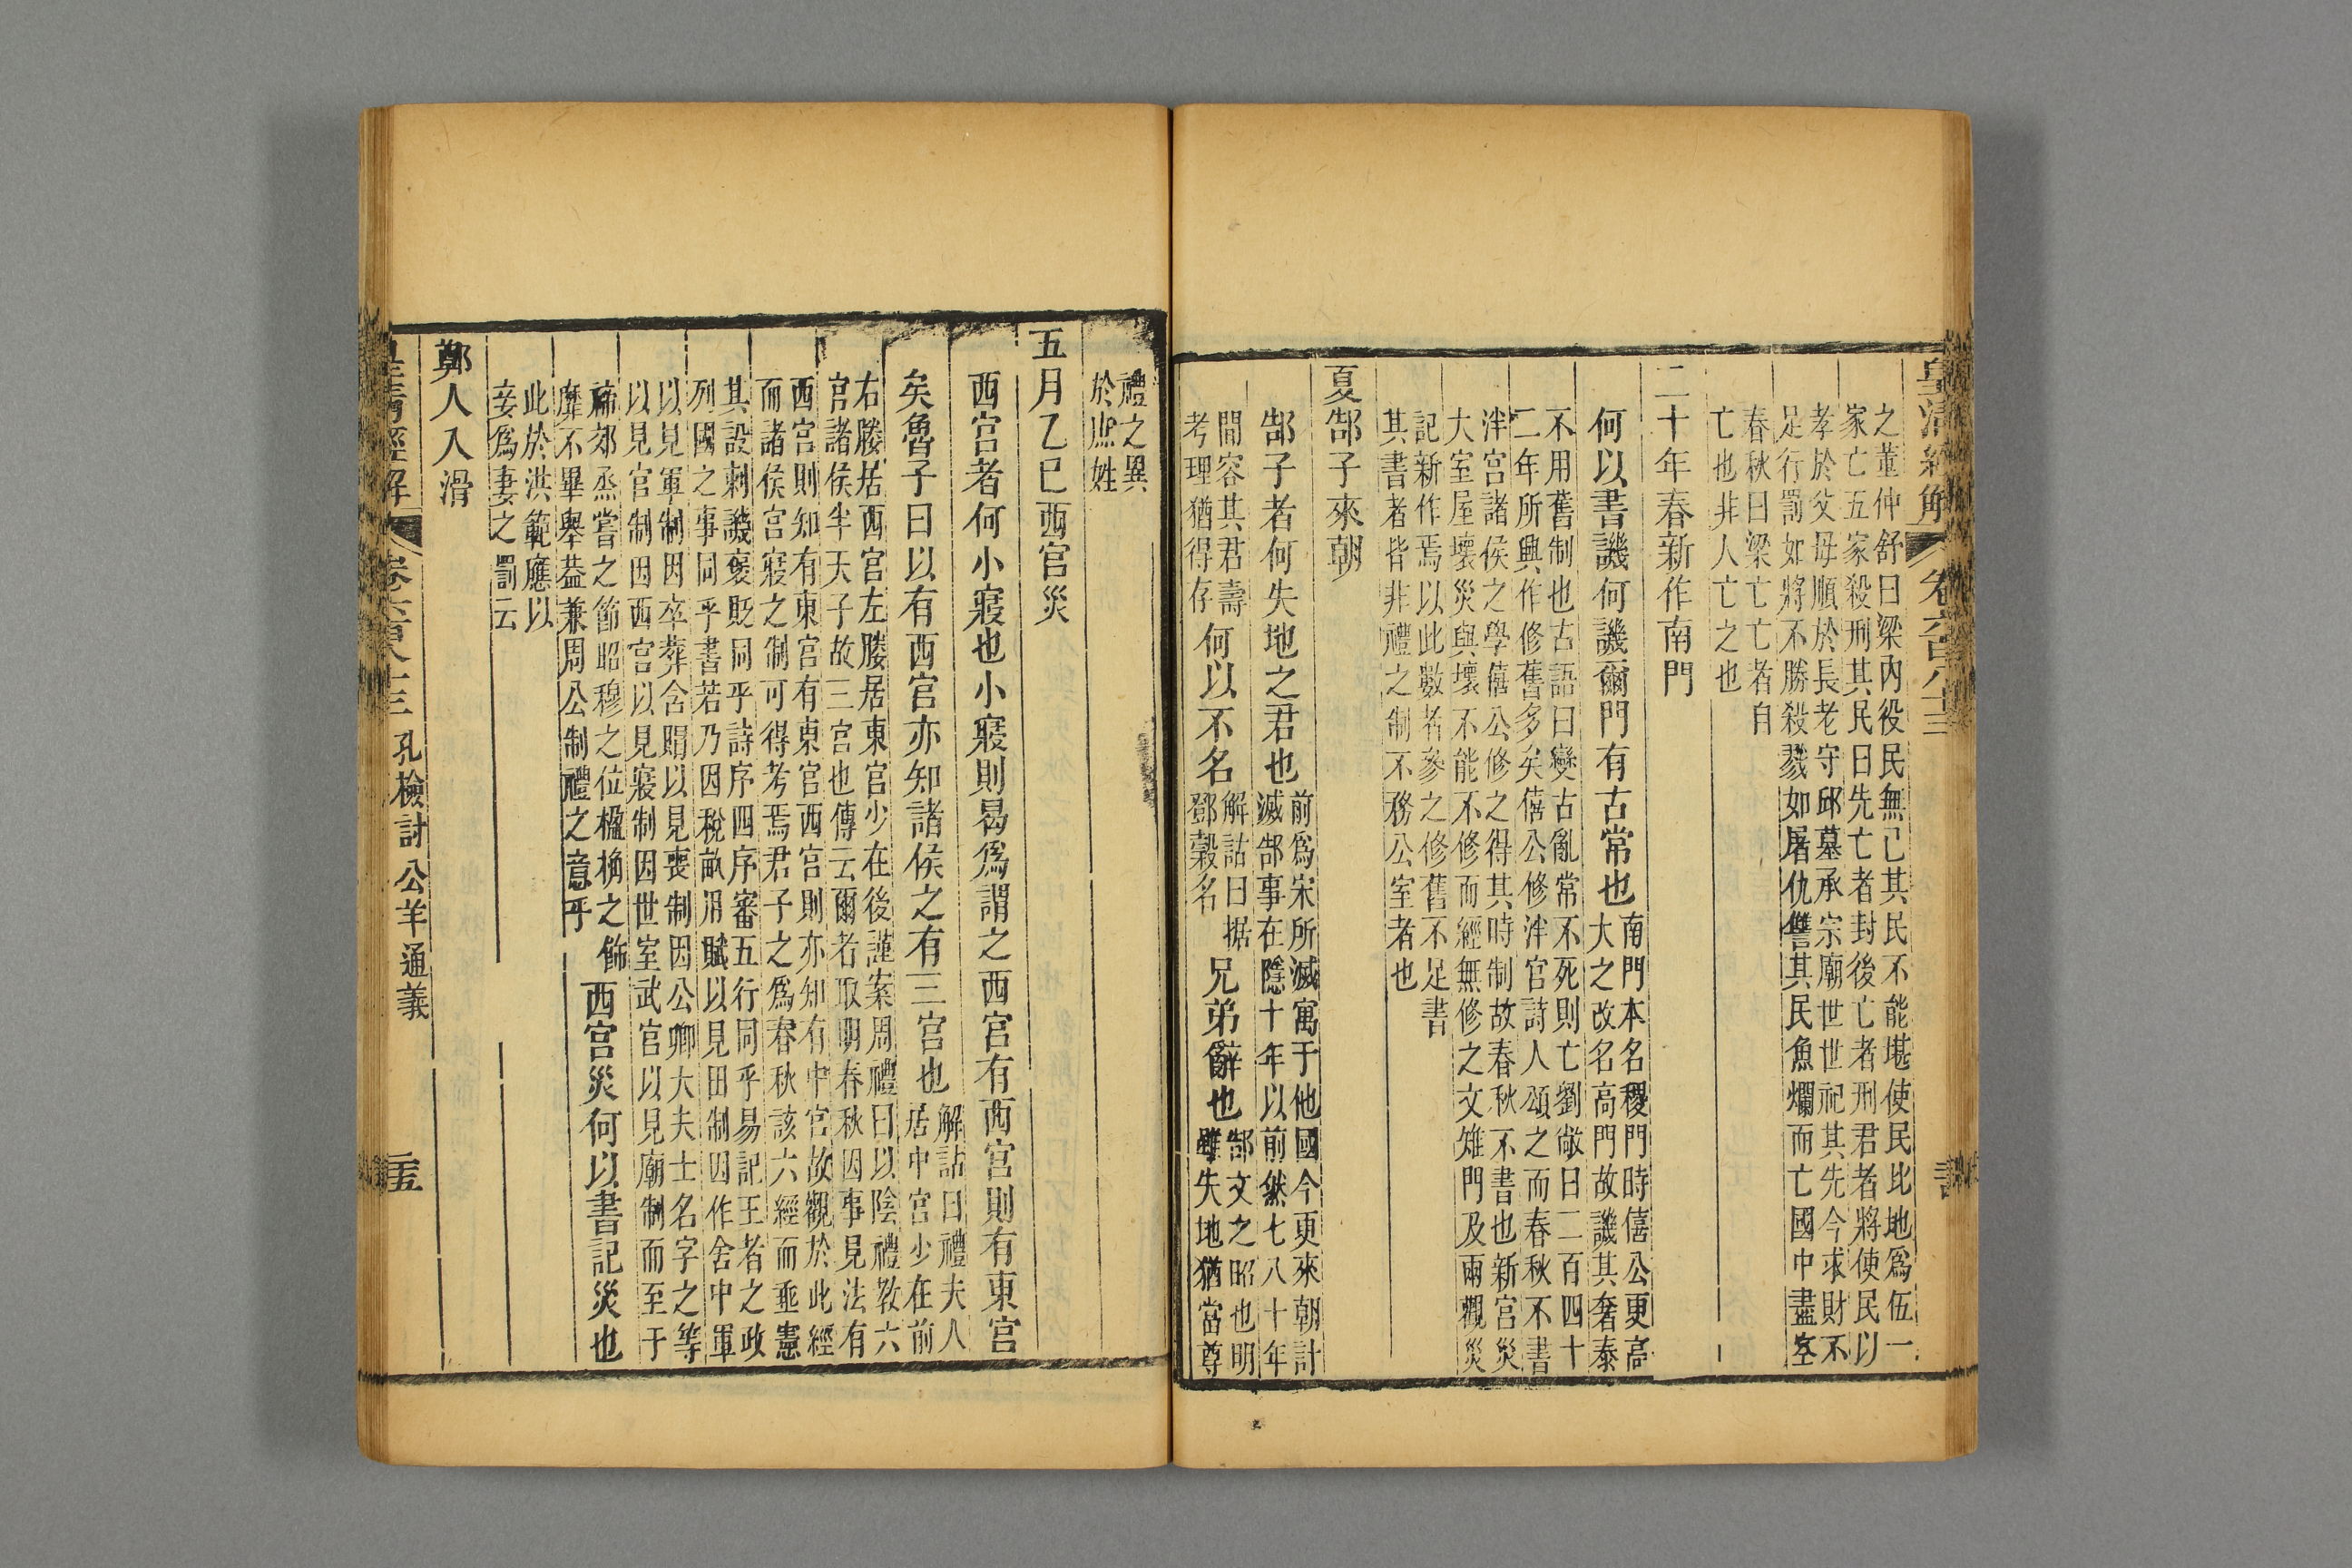 皇清經解 卷六百八十三
之董仲舒曰梁內役民無已其民不能堪使民比地爲伍一
家亡五家殺刑其民曰先亡者封後亡者刑君者將使民以
孝於父母順於長老守邱墓承宗廟世世祀其先今求財不
足行罰如將不勝殺戮如屠仇讐其民魚爛而亡國中盡空
春秋曰梁亡亡者自
亡也非人亡之也
二十年春新作南門
何以書譏何譏爾門有古常也
南門本名稷門時僖公更高
大之改名高門故譏其奢泰
不用舊制也古語曰變古亂常不死則亡劉敞曰二百四十
二年所興作修舊多矣僖公修泮宮詩人頌之而春秋不書
泮宮諸侯之學僖公修之得其時制故春秋不書也新宮災
大室屋壞災與壞不能不修而經無修之文雉門及兩觀災
記新作焉以此數者參之修舊不足書
其書者皆非禮之制不務公室者也
夏郜子來朝
郜子者何失地之君也
前爲宋所滅寓于他國今更來朝計
滅郜事在隱十年以前然七八十年
間容其君壽
考理猶得存
何以不名
解詁曰据
鄧穀名
兄弟辭也
郜文之昭也明
雖失地猶當尊
禮之異
於庶姓
五月乙巳西宮災
西宮者何小寢也小寢則曷爲謂之西宮有西宮則有東宮
矣魯子曰以有西宮亦知諸侯之有三宮也
解詁曰禮夫人
居中宮少在前
右媵居西宮左媵居東宮少在後謹案周禮曰以陰禮教六
宮諸侯半天子故三宮也傳云爾者取明春秋因事見法有
西宮則知有東宮有東宮西宮則亦知有中宮故觀於此經
而諸侯宮寢之制可得考焉君子之爲春秋該六經而垂憲
其設刺譏褒貶同乎詩序四序審五行同乎易記王者之政
列國之事同乎書若乃因稅畝用賦以見田制因作舍中軍
以見軍制因卒葬含賵以見喪制因公卿大夫士名字之等
以見官制因西宮以見寢制因世室武宮以見廟制而至于
禘郊烝嘗之節昭穆之位楹桷之飾
靡不畢舉葢兼周公制禮之意乎
西宮災何以書記災也
此於洪範應以
妾爲妻之罰云
鄭人入滑
皇清經解 卷六百八十三 孔檢討公羊通義 二五